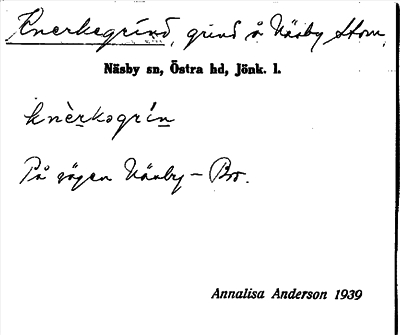 Knerkegrind, grind å Näsby Stom,
Näsby sn, Östra hd, Jönk. l.
knèrkəgrín
På vägen Näsby - Bro.
Annalisa Anderson 1939